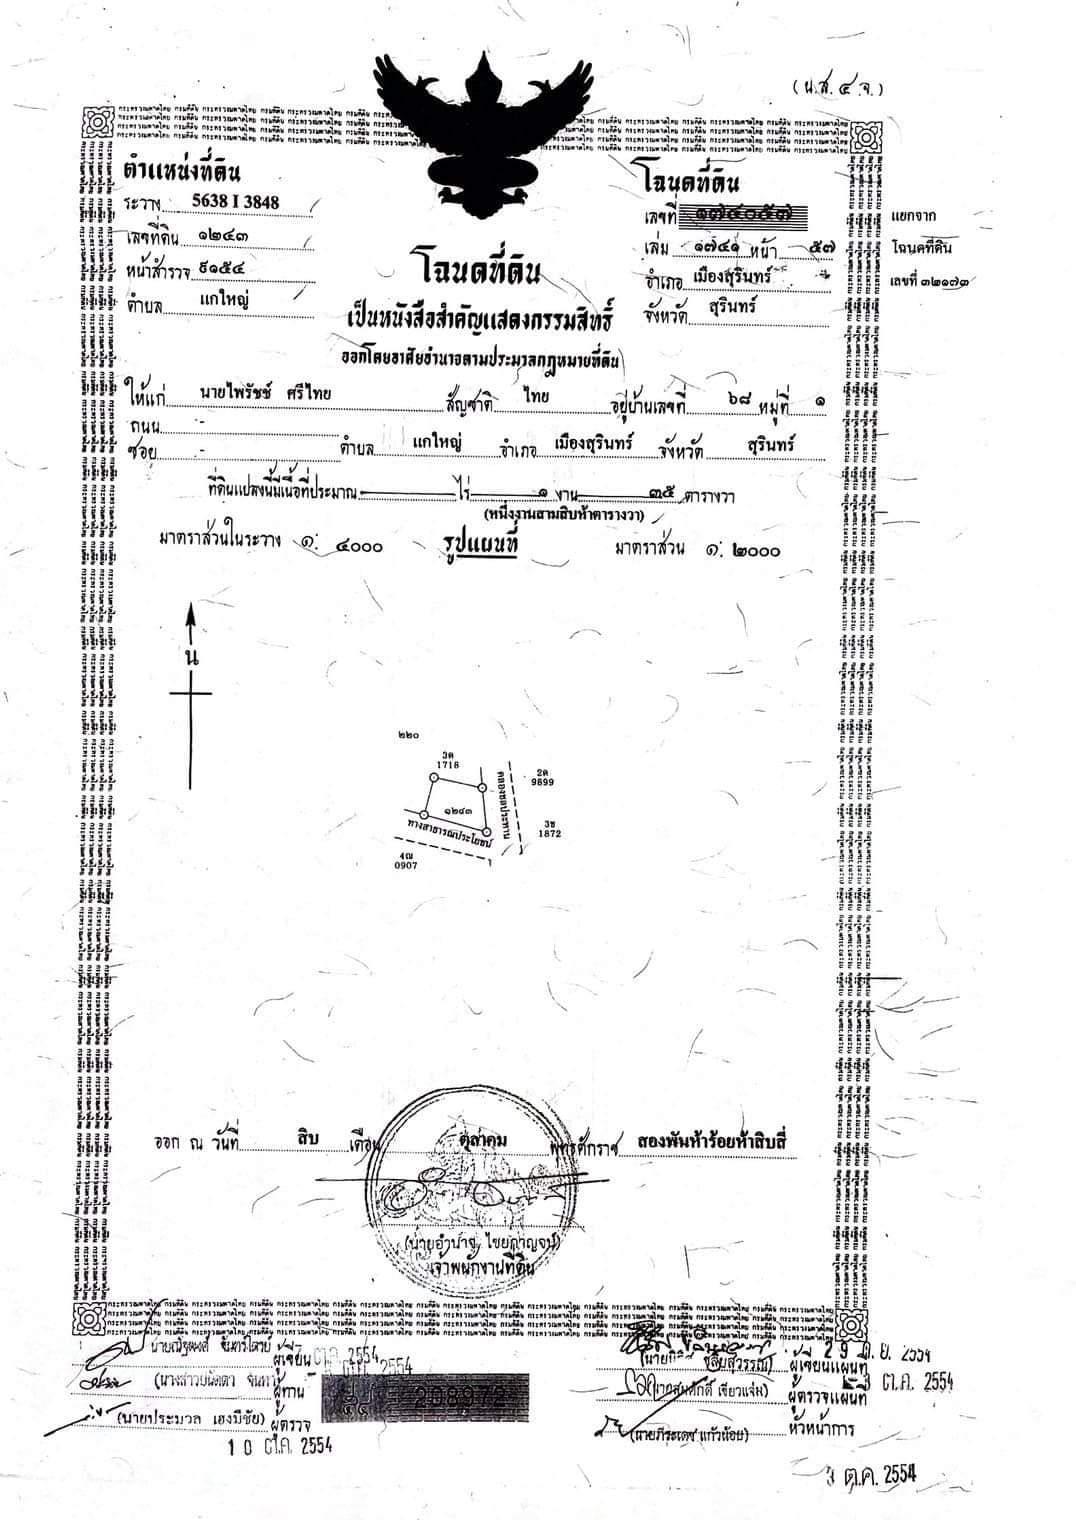 (น.ส. ๔ จ.)
ตำแหน่งที่ดิน
ระวาง 5638 I 3848
เลขที่ดิน ๑๒๔๓
หน้าสำรวจ ๙๑๕๔
ตำบล แกใหญ่
โฉนดที่ดิน
เลขที่ ๑๗๔๐๕๗
เล่ม ๑๗๔๑ หน้า ๕๗
อำเภอ เมืองสุรินทร์
จังหวัด สุรินทร์
แยกจาก
โฉนดที่ดิน
เลขที่ ๓๒๑๗๓
โฉนดที่ดิน
เป็นหนังสือสำคัญแสดงกรรมสิทธิ์
ออกโดยอาศัยอำนาจตามประมวลกฎหมายที่ดิน
ให้แก่ นายไพรัชช์ ศรีไทย สัญชาติ ไทย อยู่บ้านเลขที่ ๖๘ หมู่ที่ ๑
ถนน -
ซอย - ตำบล แกใหญ่ อำเภอ เมืองสุรินทร์ จังหวัด สุรินทร์
ที่ดินแปลงนี้มีเนื้อที่ประมาณ ไร่ ๑ งาน ๓๕ ตารางวา
(หนึ่งงานสามสิบห้าตารางวา)
มาตราส่วนในระวาง ๑: ๔๐๐๐ รูปแผนที่ มาตราส่วน ๑: ๒๐๐๐
น
๒๒๐
3ด
1718
2ด
9899
๑๒๔๓
คลองชลประทาน
3ช
1872
ทางสาธารณประโยชน์
4ณ
0907
ออก ณ วันที่ สิบ เดือน ตุลาคม พุทธศักราช สองพันห้าร้อยห้าสิบสี่
(นายอำนาจ ไชยกาญจน์)
เจ้าพนักงานที่ดิน
ผู้เขียน ต.ค. 2554
ผู้ทาน ต.ค. 2554
(นายประมวล เฮงมีชัย) ผู้ตรวจ
10 ต.ค. 2554
208972
ผู้เขียนแผนที่ 2554
(นายสมศักดิ์ เขียวแจ่ม) ผู้ตรวจแผนที่ ต.ค. 2554
(นายภีระเดช แก้วน้อย) หัวหน้าการ
3 ต.ค. 2554